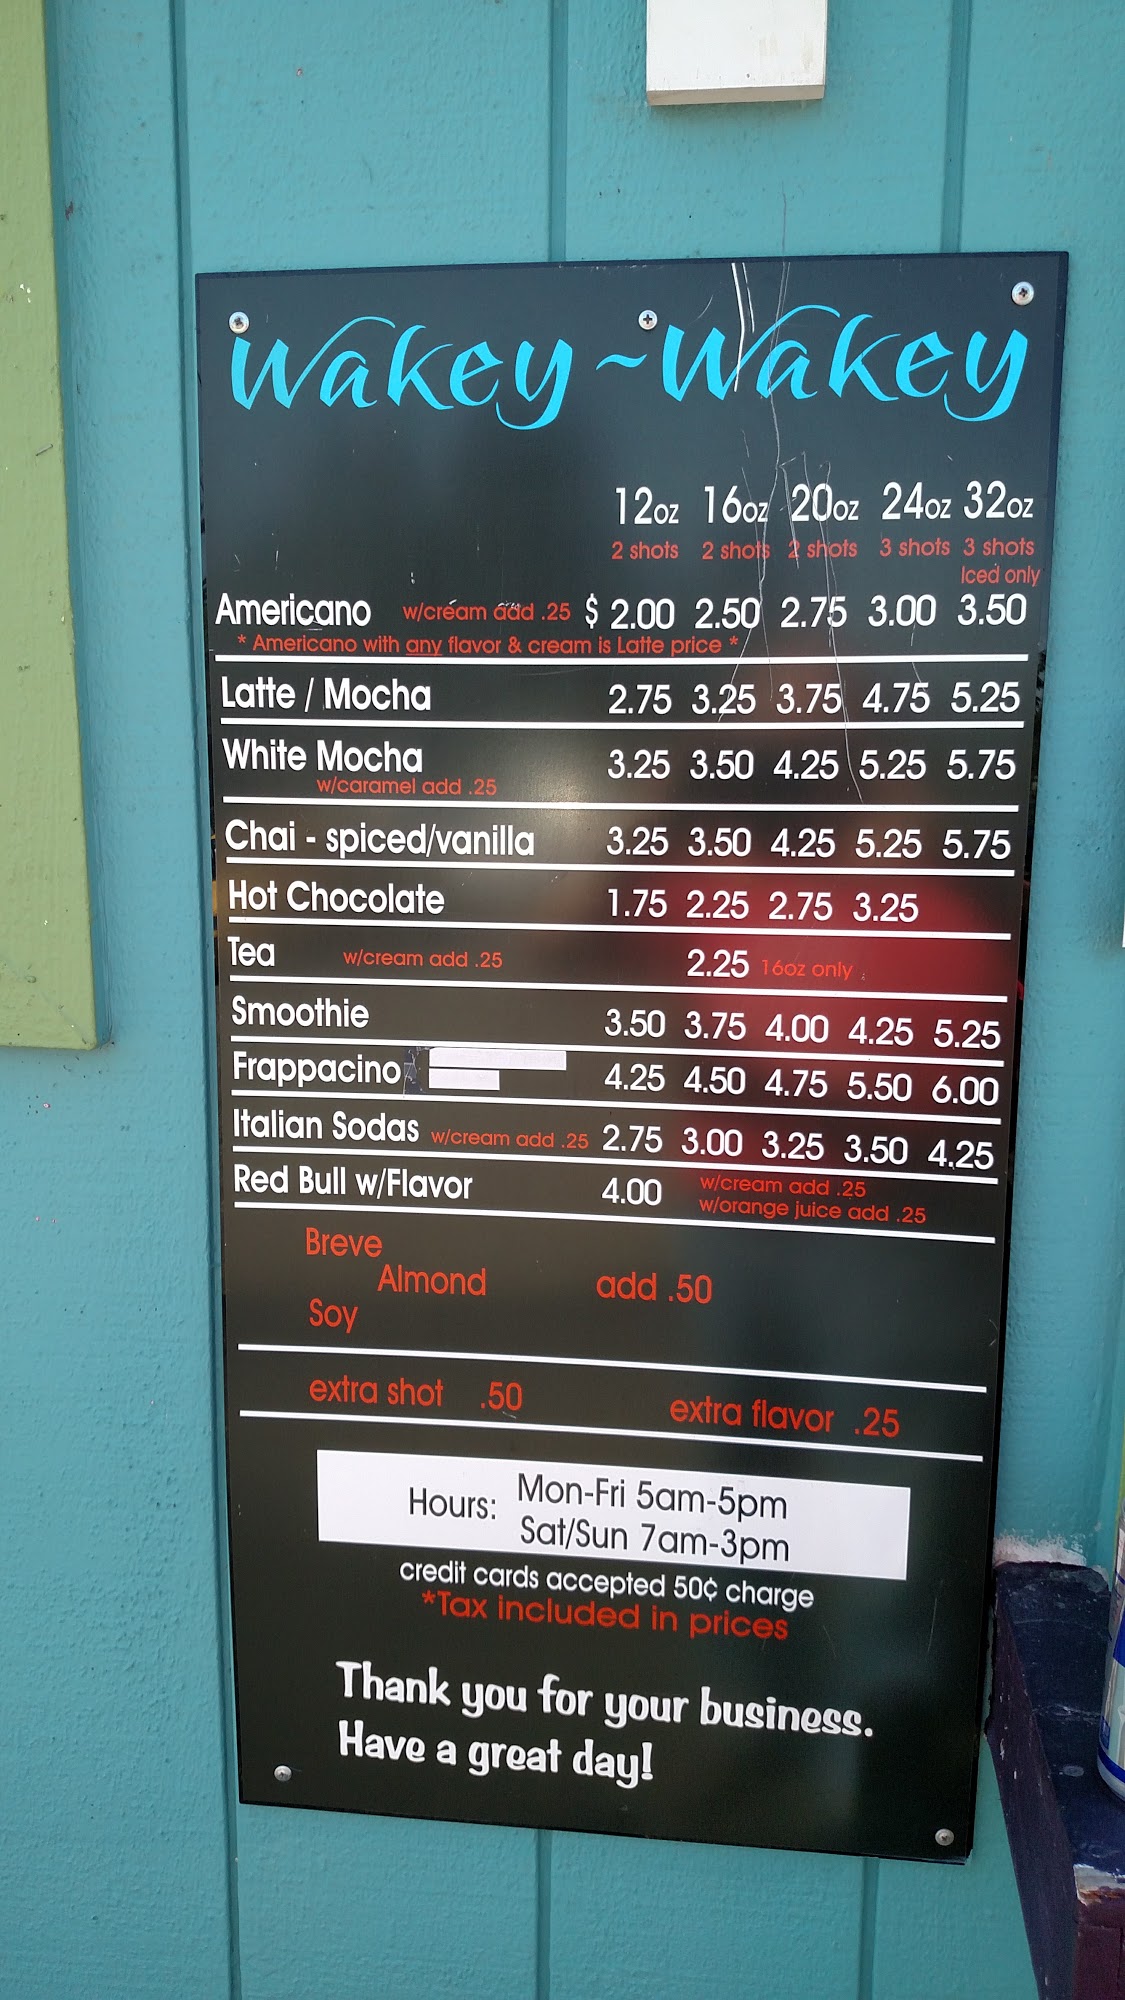 Wakey~Wakey
12oz 16oz 20oz 24oz 32oz
2 shots 2 shots 2 shots 3 shots 3 shots
Iced only
Americano w/cream add .25 $ 2.00 2.50 2.75 3.00 3.50
* Americano with any flavor & cream is Latte price *
Latte / Mocha 2.75 3.25 3.75 4.75 5.25
White Mocha 3.25 3.50 4.25 5.25 5.75
w/caramel add .25
Chai - spiced/vanilla 3.25 3.50 4.25 5.25 5.75
Hot Chocolate 1.75 2.25 2.75 3.25
Tea w/cream add .25 2.25 16oz only
Smoothie 3.50 3.75 4.00 4.25 5.25
Frappacino 4.25 4.50 4.75 5.50 6.00
Italian Sodas w/cream add .25 2.75 3.00 3.25 3.50 4.25
Red Bull w/Flavor 4.00 w/cream add .25
w/orange juice add .25
Breve
Almond add .50
Soy
extra shot .50 extra flavor .25
Hours: Mon-Fri 5am-5pm
Sat/Sun 7am-3pm
credit cards accepted 50¢ charge
*Tax included in prices
Thank you for your business.
Have a great day!